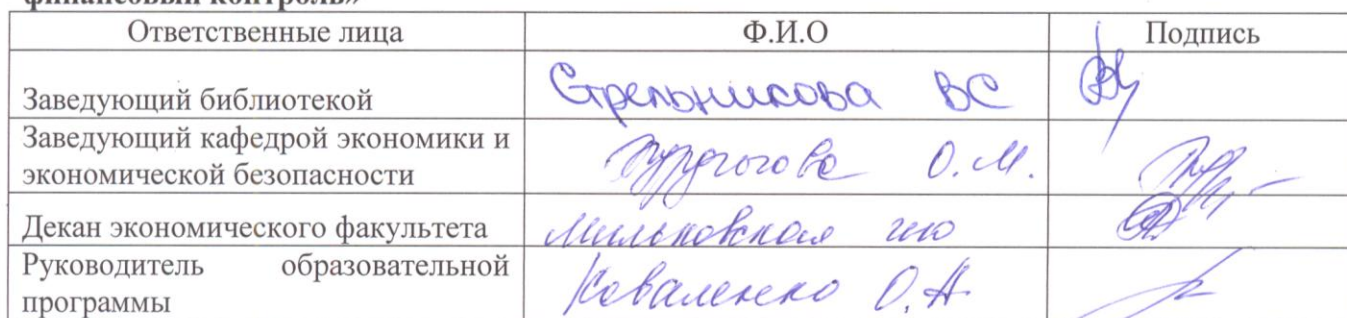 финансовый контроль»
Ответственные лица Ф.И.О Подпись
Заведующий библиотекой Стрельникова ВС
Заведующий кафедрой экономики и
экономической безопасности О.М.
Декан экономического факультета Мильковская
Руководитель образовательной
программы Коваленко О.А.